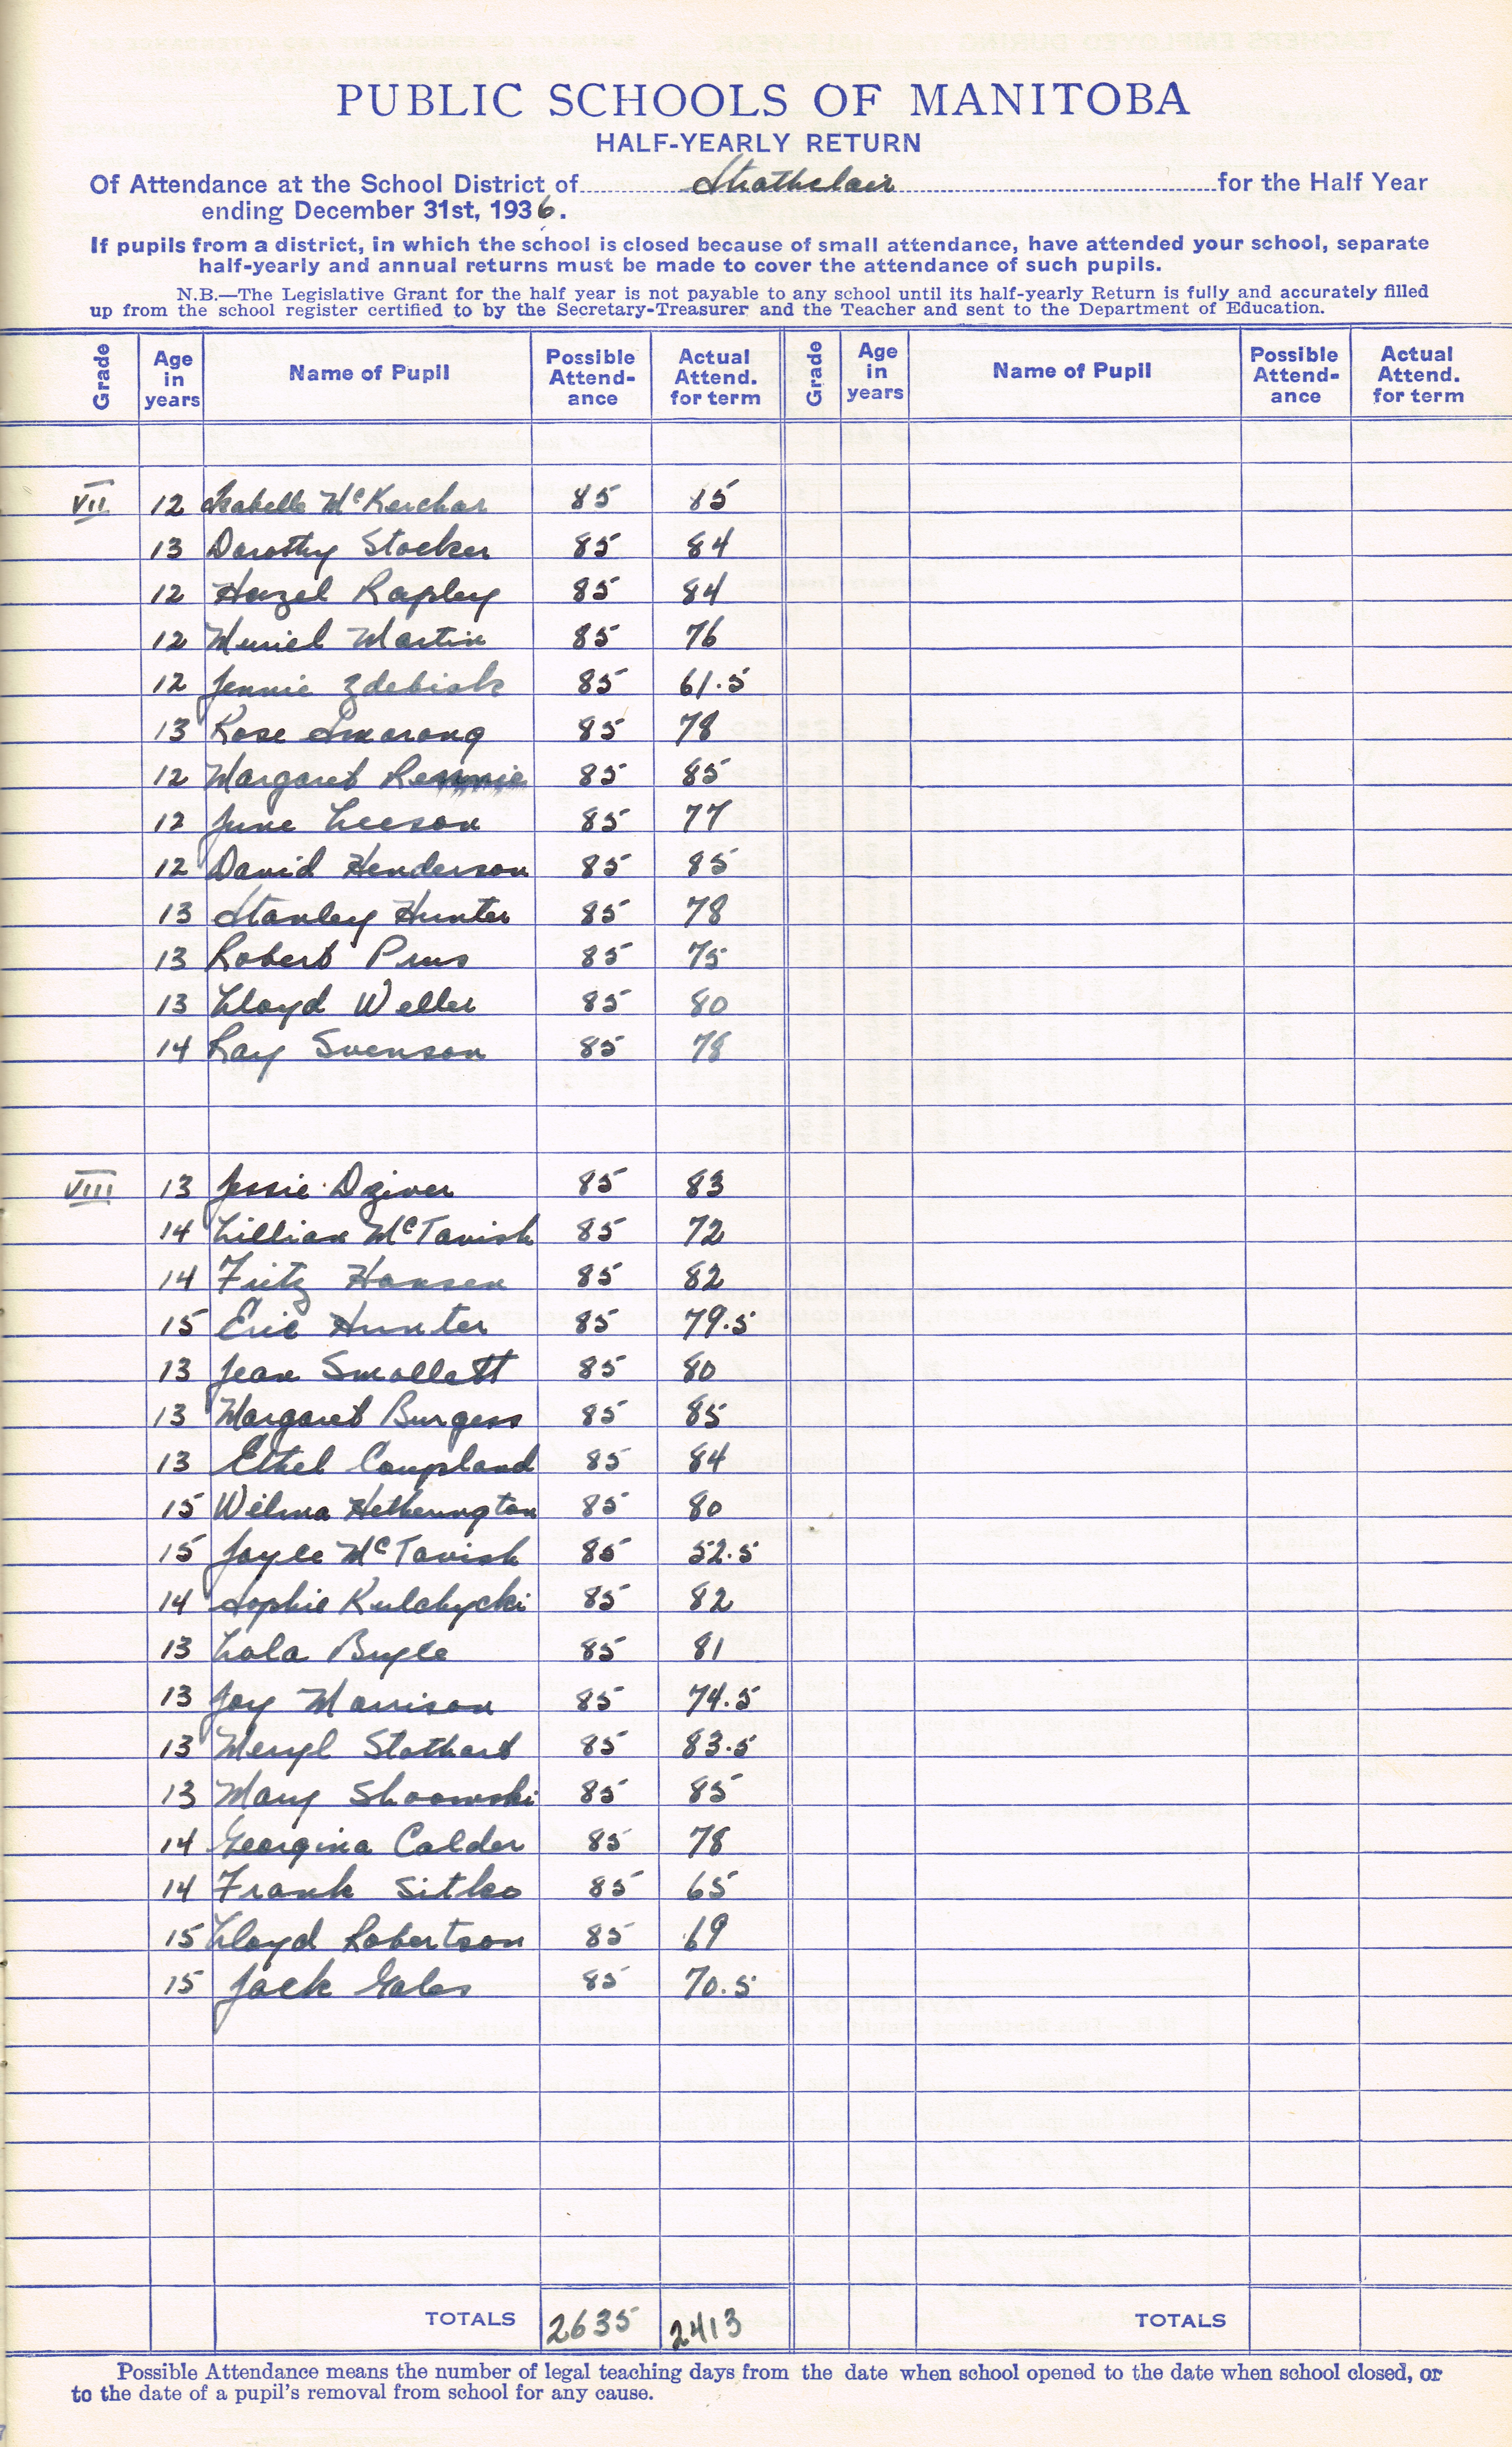 PUBLIC SCHOOLS OF MANITOBA
HALF-YEARLY RETURN
Of Attendance at the School District of Strathclair for the Half Year
ending December 31st, 1936.
If pupils from a district, in which the school is closed because of small attendance, have attended your school, separate
half-yearly and annual returns must be made to cover the attendance of such pupils.
N.B.—The Legislative Grant for the half year is not payable to any school until its half-yearly Return is fully and accurately filled
up from the school register certified to by the Secretary-Treasurer and the Teacher and sent to the Department of Education.
Grade Age in years Name of Pupil Possible Attend-ance Actual Attend. for term Grade Age in years Name of Pupil Possible Attend-ance Actual Attend. for term
VII 12 Isabelle McKerchar 85 85
13 Dorothy Stocker 85 84
12 Hazel Rapley 85 84
12 Muriel Martin 85 76
12 Jennie Zdebiak 85 61.5
13 Rose Smarong 85 78
12 Margaret Rennie 85 85
12 June Leeson 85 77
12 David Henderson 85 85
13 Stanley Hunter 85 78
13 Robert Prus 85 75
13 Lloyd Weller 85 80
14 Ray Svenson 85 78
VIII 13 Jessie Dziver 85 83
14 Lillian McTavish 85 72
14 Fritz Hansen 85 82
15 Eric Hunter 85 79.5
13 Jean Smallett 85 80
13 Margaret Burgess 85 85
13 Ethel Coupland 85 84
15 Wilma Hetherington 85 80
15 Joyce McTavish 85 52.5
14 Sophie Kulchycki 85 82
13 Lola 85 81
13 Joy Morrison 85 74.5
13 Meryl Stothard 85 83.5
13 Mary 85 85
14 Georgina Calder 85 78
14 Frank Sitko 85 65
15 Lloyd Robertson 85 69
15 Jack Gales 85 70.5
TOTALS 2635 2413 TOTALS
Possible Attendance means the number of legal teaching days from the date when school opened to the date when school closed, or
to the date of a pupil's removal from school for any cause.